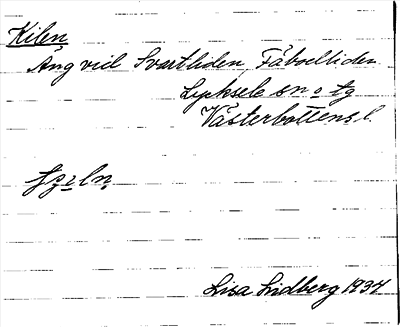 Kilen
Äng vid Svartliden, Fäboliden
Lycksele sn o tg
Västerbottens l.
Lisa Lidberg 1934